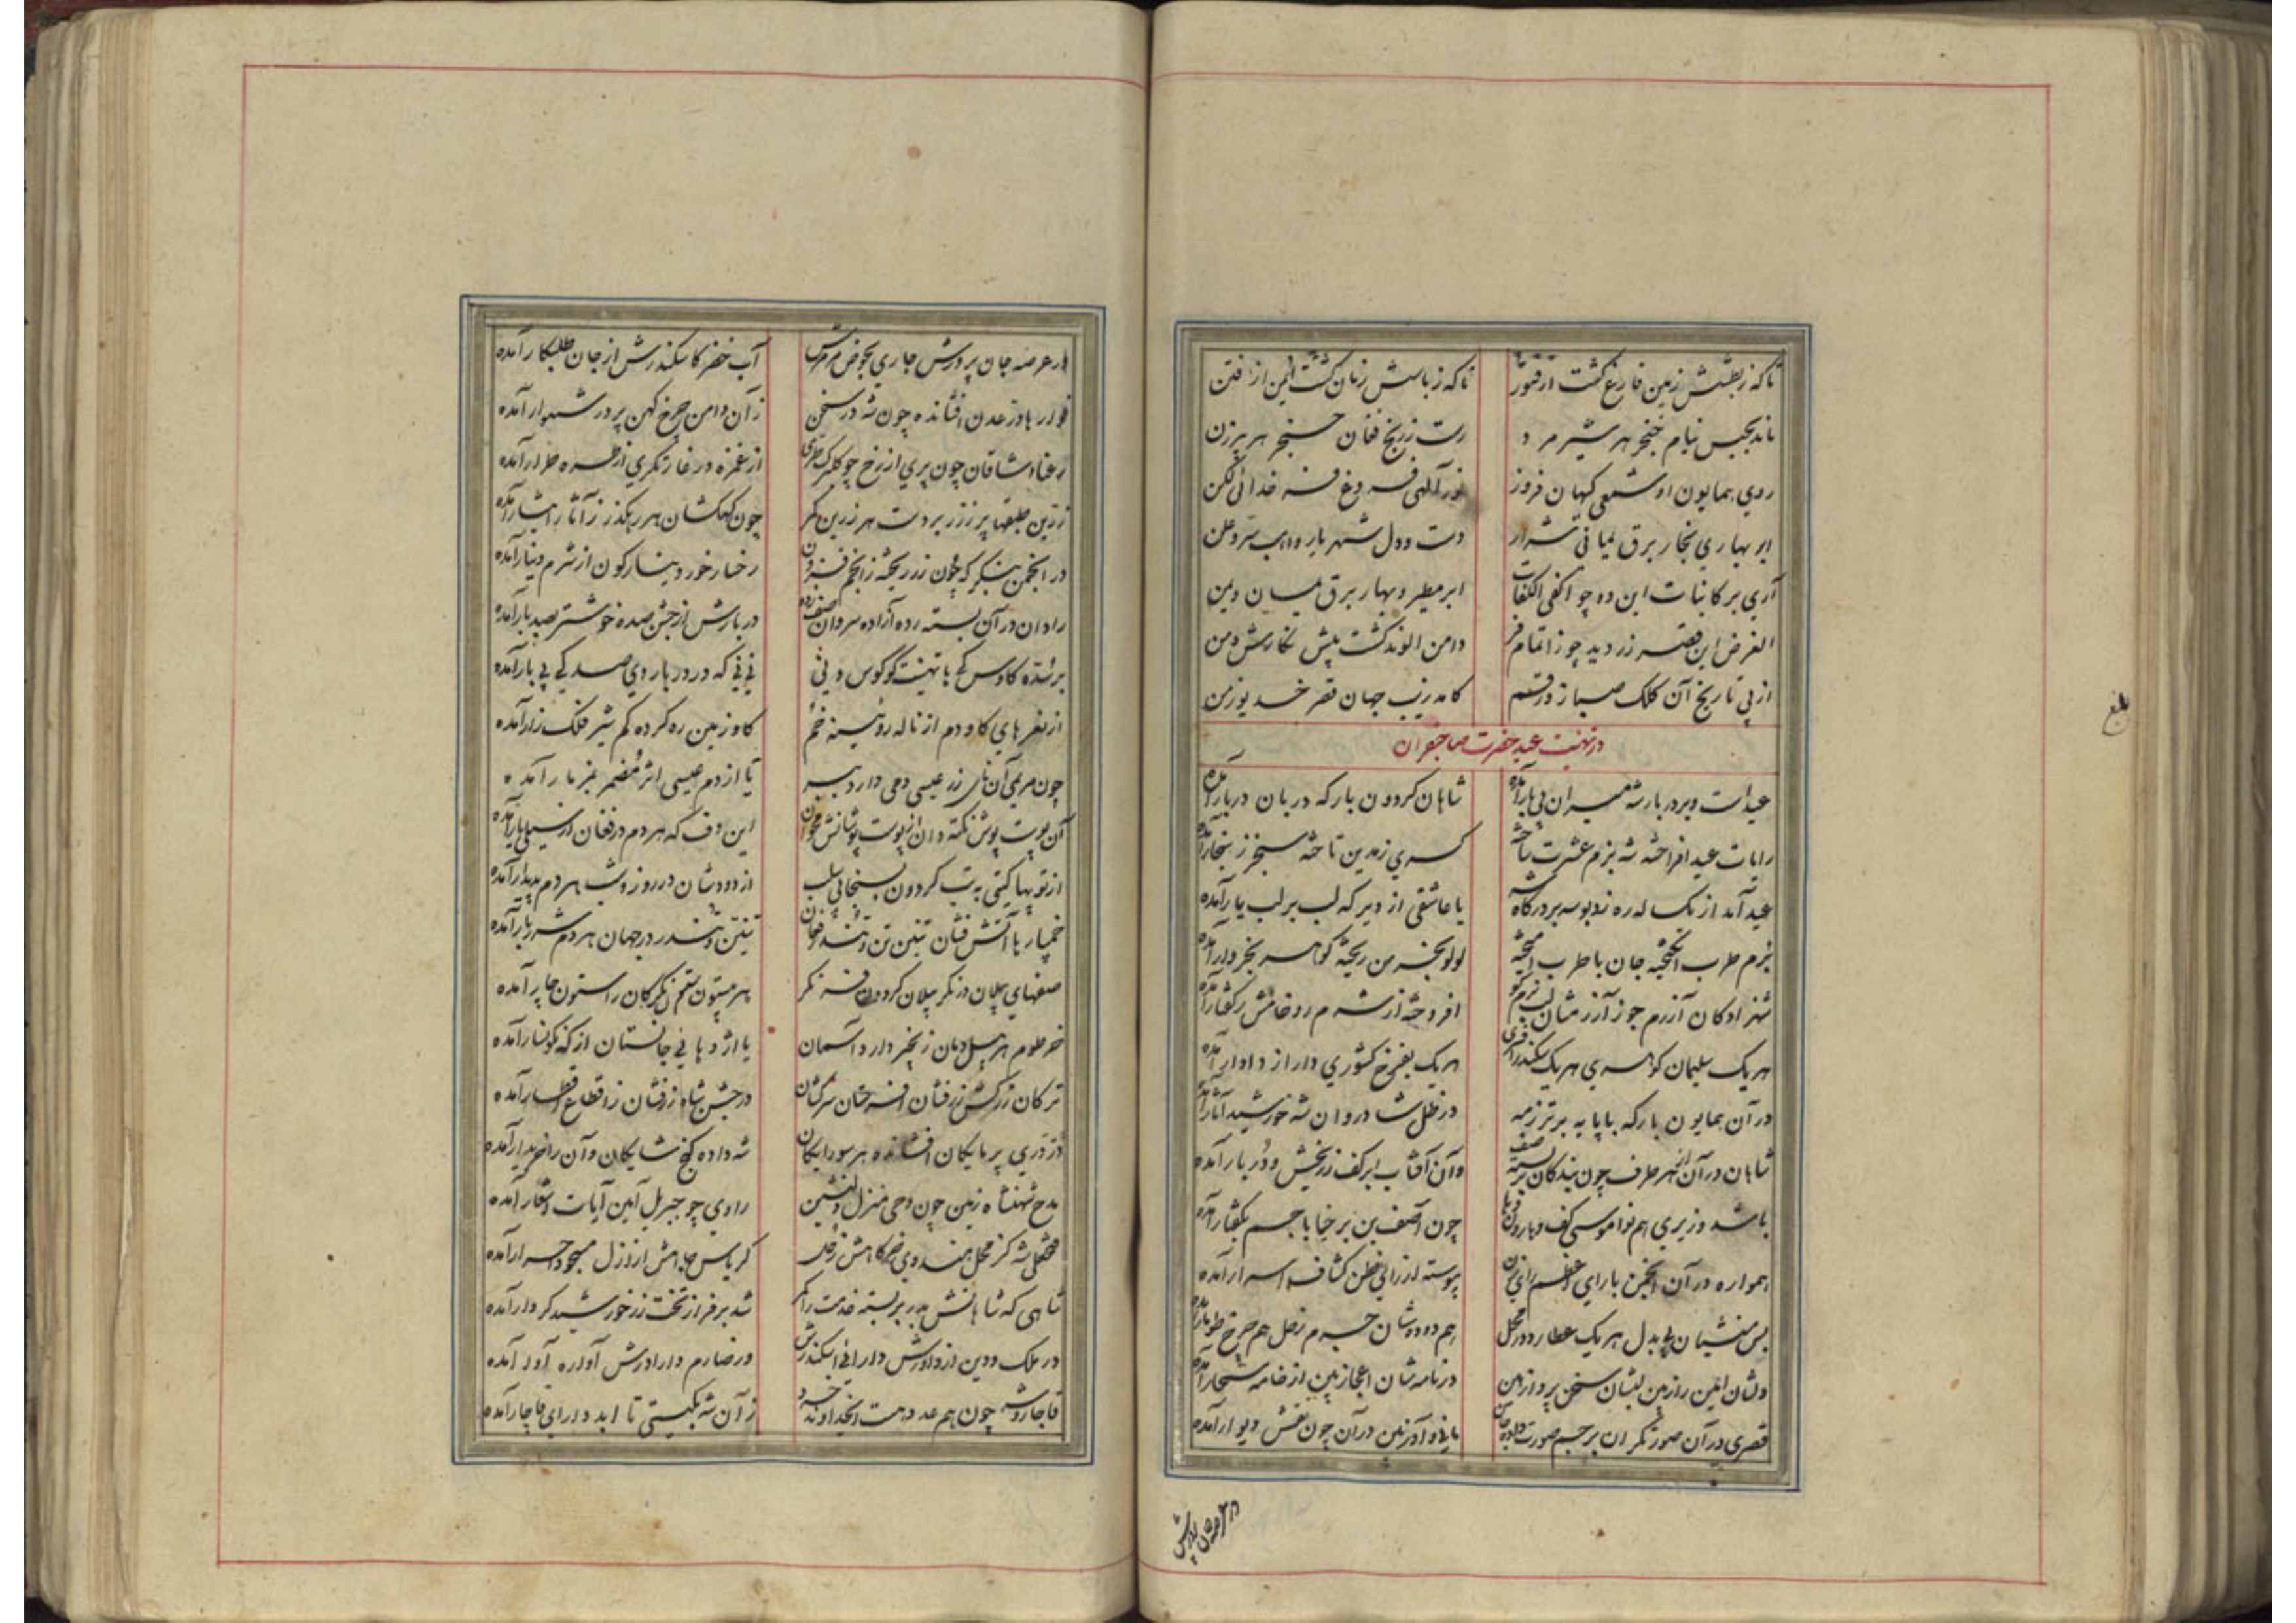 تا که ز بطشش زمین فارغ گشت از فتور
تا که ز باسش زمان گشت ایمن از فتن
ماند بحبس نیام خنجر هر شیر مرد
رست ز رنج فغان حنجر هر پیرزن
روی همایون او شمعی کیهان فروز
نور آلهی فروغ فره خدائی لکن
ابر بهاری بخار برق یمانی شرار
دست و دل شهریار واهب سر و علن
آری بر کاینات این دو چو اکفی الکفات
ابر مطیر و بهار برق یمان و یمن
الغرض این قصر زردید چو ز اتمام فر
دامن الوند گشت پیش نگارش دمن
از پی تاریخ آن کلک صبا زد رقم
کامد زیب جهان قصر خدیو زمن
در تهنیت عید حضرت صاحبقران
عیدست و بر دربار شه میران پی بار آمده
شاهان گردون بارگه دربان دربار آمده
رایات عید افراخته شه بزم عشرت ساخته
کسری ز مدین تاخته سنجر ز سنجار آمده
عید آمد از یکساله ره زد بوسه بر درگاه شه
یا عاشقی از دیر گه لب بر لب یار آمده
بزم طرب انگیخته جان با طرب آمیخته
لولو بخرمن ریخته گوهر بخروار آمده
شهزادگان آزرم جو ز آزرمشان لب نرم گو
افروخته از شرم رو خامش ز گفتار آمده
هر یک سلیمان گوهری هر یک سکندر افسری
هر یک بفرخ کشوری دارا ز دادار آمده
در آن همایون بارگه با پایه برتر ز مه
در ظل شادروان شه خورشید آثار آمده
شاهان در آن از هر طرف چون بندگان بربسته صف
وآن آفتاب ابر کف زربخش و دُربار آمده
باشد وزیری هم نوا موسی کف و هارون
چون آصف بن برخیا با جم بگفتار آمده
همواره در آن انجمن با رای اعظم رای زن
پیوسته از رای فطن کشاف اسرار آمده
بس منشیان بی بدل هر یک عطارد در محل
هم دودشان جرم زحل هم چرخ طومار آمده
دلشان امین راز بین لبشان سخن پرداز بین
در نامه شان اعجاز بین از خامه سحار آمده
قصری در آن صورتگران بر جسم صورت داده جان
مانی و آذر بین در آن چون نقش دیوار آمده
در عرصه جان پرورش
بلغ
در عرصه جان پرورش جاری بحوض مرمرش
آب خضر کاسکندرش از جان طلبکار آمده
فوارها در عدن افشانده چون شه در سخن
زآن دامن چرخ کهن پر در شهوار آمده
رعنا وشاقان چون پری از رخ چو گلبرگ طری
از غمزه در غارتگری از طره طرار آمده
زرین طبقها پر ز زر بر دست هر زرین کمر
چون کهکشان هر رهگذر ز آثار ایثار آمده
در انجمن بنگر که چون زر ریخته ز انجم فزون
رخسار خور دینارگون از شرم دینار آمده
رادان در آن بسته رده آزاده سروان صف زده
دربارش از جشن سده خوشتر بصد بار آمده
بر شده کاوس کی با تهنیت گو کوس و نی
نی نی که در دربار وی صد کی پی بار آمده
از نفرهای گاو دم از ناله رویینه خم
گاو زمین ره کرده گم شیر فلک زار آمده
چون مریمی آن نای زر عیسی دمی دارد ببر
تا از دم عیسی اثر مضمر بمزمار آمده
آن پوست پوش نکته دان از پوست پوشانش مخوان
این دف که هر دم در فغان از سیلی یار آمده
از توپها گیتی به تب گردون بسنجابی سلب
از دودشان در روز و شب هر دم پدیدار آمده
خمپارها آتش فشان تنین تن و تندر فغان
تنین و تندر در جهان هر دم شرربار آمده
صفهای پیلان در نگر پیلان گردون فر نگر
خرطوم هر پیل دمان زنجیر دار و آسمان
یا اژدهایی جانستان از که نگونسار آمده
ترکان زرکش زرفشان افسر ختان سرکشان
در جشن شاه زرفشان ز اقطاع اقطار آمده
دُر دری پر مایگان افشانده هر سو رایگان
شه داده گنج شایگان وآن را خریدار آمده
مدح شهنشاه زمین چون وحی منزل دلنشین
راوی چو جبریل امین آیات اشعار آمده
کریاس جاهش از ازل مسجود احرار آمده
شاهی که شاهانش بدر بربسته خدمت را کمر
شه بر فراز تخت زر خورشید کردار آمده
در ملک و دین از داورش دارایی اسکندرش
در صارم دارا درش آواره آوار آمده
قاجار و شه چون هم عدد هست ایخداوند خرد
زآن شه بگیتی تا ابد دارای قاجار آمده